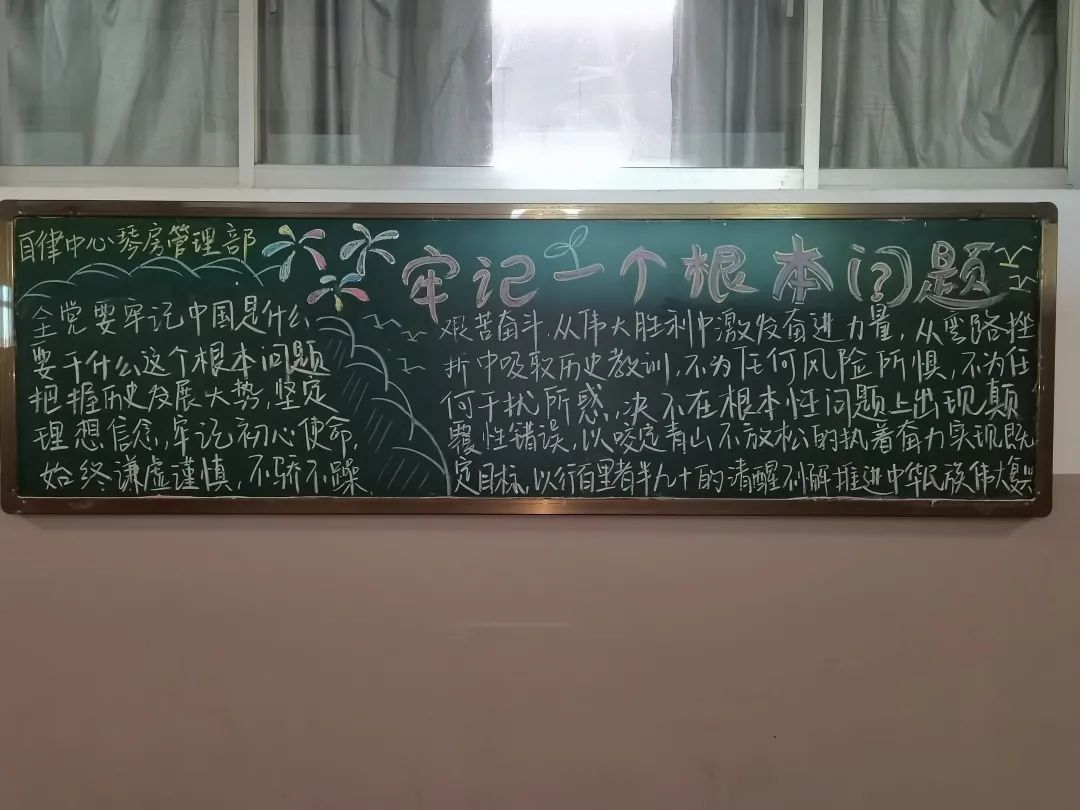 自律中心琴房管理部
牢记一个根本问题
全党要牢记中国是什么
要干什么这个根本问题
把握历史发展大势，坚定
理想信念，牢记初心使命，
始终谦虚谨慎，不骄不躁，
艰苦奋斗，从伟大胜利中激发奋进力量，从弯路挫
折中吸取历史教训，不为任何风险所惧，不为任
何干扰所惑，决不在根本性问题上出现颠
覆性错误，以咬定青山不放松的执着奋力实现既
定目标，以行百里者半九十的清醒不懈推进中华民族伟大复兴